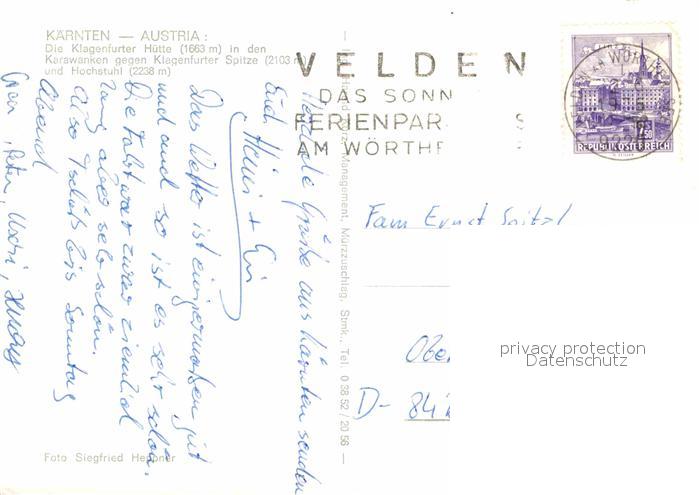 KÄRNTEN — AUSTRIA :
Die Klagenfurter Hütte (1663 m) in den
Karawanken gegen Klagenfurter Spitze (2103 m)
und Hochstuhl (2238 m)
Herzliche Grüße aus Kärnten senden
Euch Heini +
Das Wetter ist einigermaßen gut
und auch so ist es sehr schön.
Die Fahrt war zwar ziemlich
lang aber sehr schön.
Also Tschüß bis Sonntag
Abend
Peter, Uschi,
VELDEN
DAS SONN
FERIENPAR S
AM WÖRTHE
2.50
REPUBLIK ÖSTERREICH
Management, Mürzzuschlag, Stmk., Tel. 0 38 52 / 20 56
Fam Ernst
Ober
D- 84
privacy protection
Datenschutz
Foto Siegfried Heppner